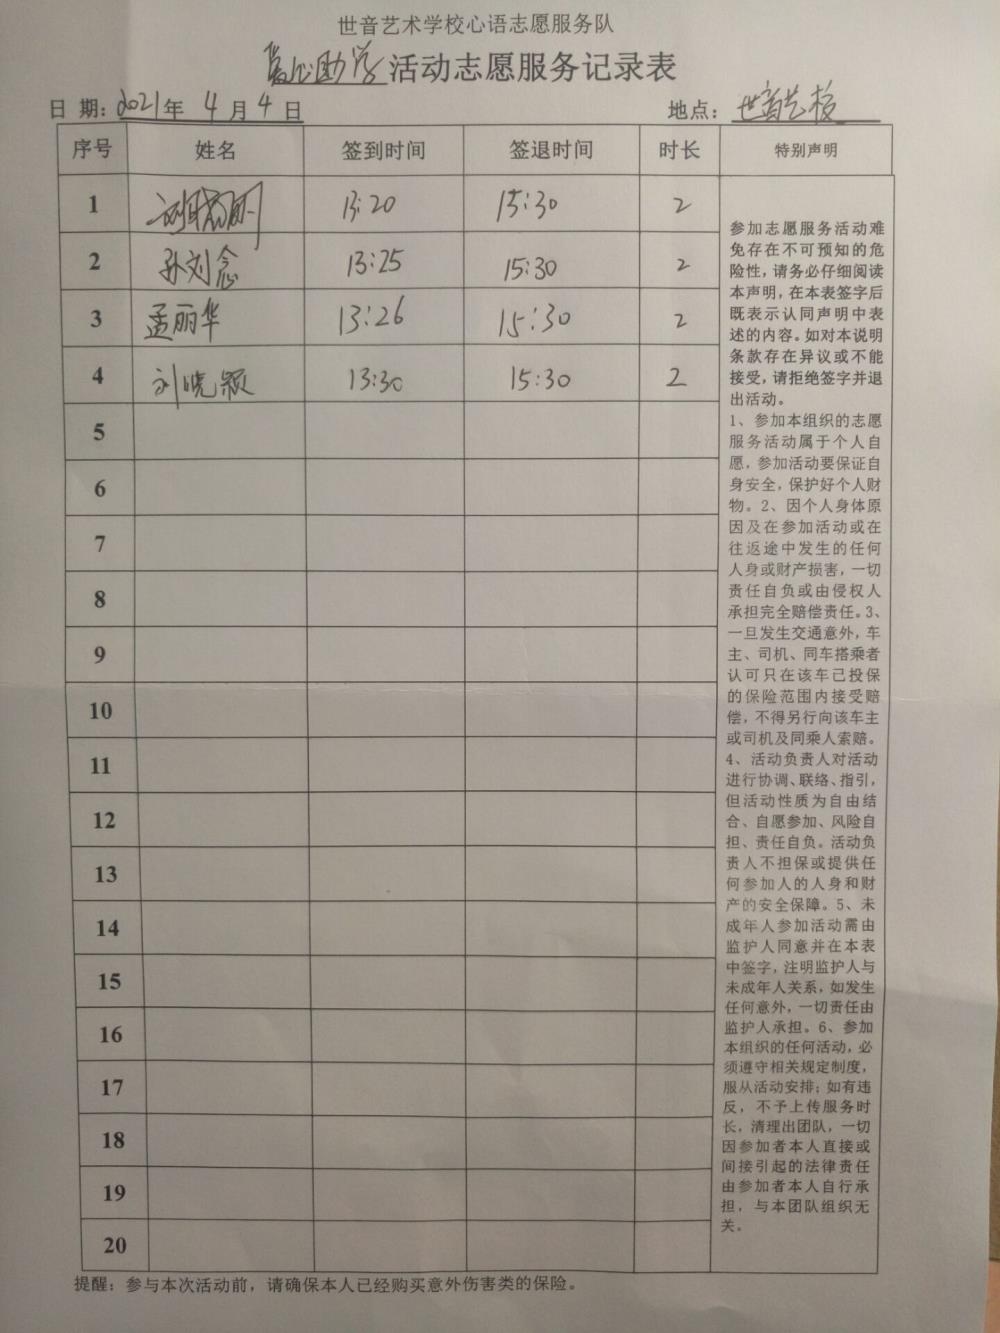 世音艺术学校心语志愿服务队
爱心助学活动志愿服务记录表
日 期：2021年 4 月 4 日 地点：世音艺校
序号 姓名 签到时间 签退时间 时长 特别声明
1 13:20 15:30 2
2 孙刘念 13:25 15:30 2
3 孟丽华 13:26 15:30 2
4 刘晓颖 13:30 15:30 2
5
6
7
8
9
10
11
12
13
14
15
16
17
18
19
20
参加志愿服务活动难
免存在不可预知的危
险性，请务必仔细阅读
本声明，在本表签字后
既表示认同声明中表
述的内容。如对本说明
条款存在异议或不能
接受，请拒绝签字并退
出活动。
1、参加本组织的志愿
服务活动属于个人自
愿，参加活动要保证自
身安全，保护好个人财
物。2、因个人身体原
因及在参加活动或在
往返途中发生的任何
人身或财产损害，一切
责任自负或由侵权人
承担完全赔偿责任。3、
一旦发生交通意外，车
主、司机、同车搭乘者
认可只在该车已投保
的保险范围内接受赔
偿，不得另行向该车主
或司机及同乘人索赔。
4、活动负责人对活动
进行协调、联络、指引，
但活动性质为自由结
合、自愿参加、风险自
担、责任自负。活动负
责人不担保或提供任
何参加人的人身和财
产的安全保障。5、未
成年人参加活动需由
监护人同意并在本表
中签字，注明监护人与
未成年人关系，如发生
任何意外，一切责任由
监护人承担。6、参加
本组织的任何活动，必
须遵守相关规定制度，
服从活动安排；如有违
反，不予上传服务时
长，清理出团队，一切
因参加者本人直接或
间接引起的法律责任
由参加者本人自行承
担，与本团队组织无
关。
提醒：参与本次活动前，请确保本人已经购买意外伤害类的保险。